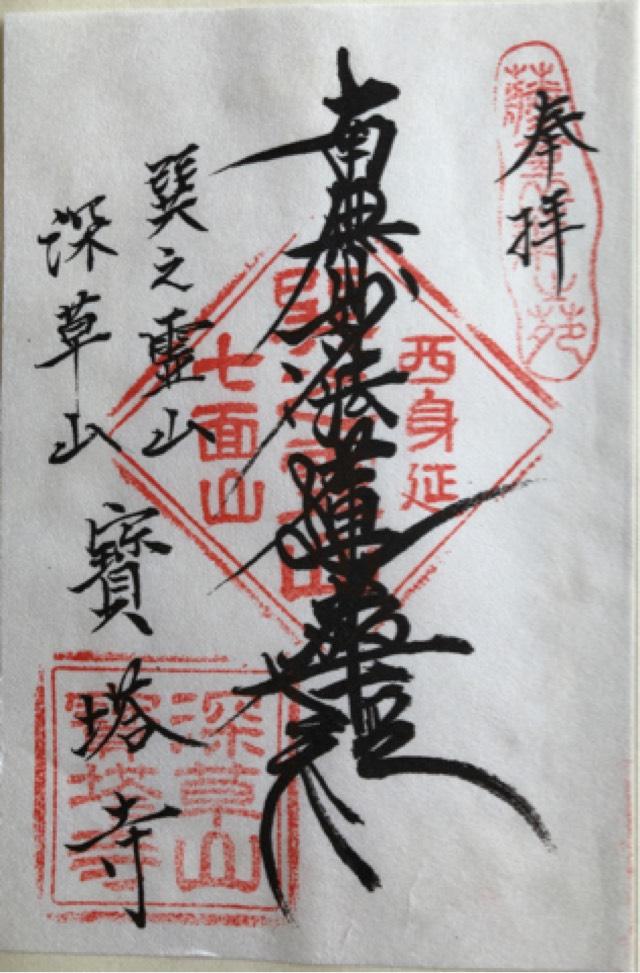 奉拜
南無妙法蓮華經
西身延
七面山
巽之靈山
深草山
寶塔寺
深草山
寶塔寺